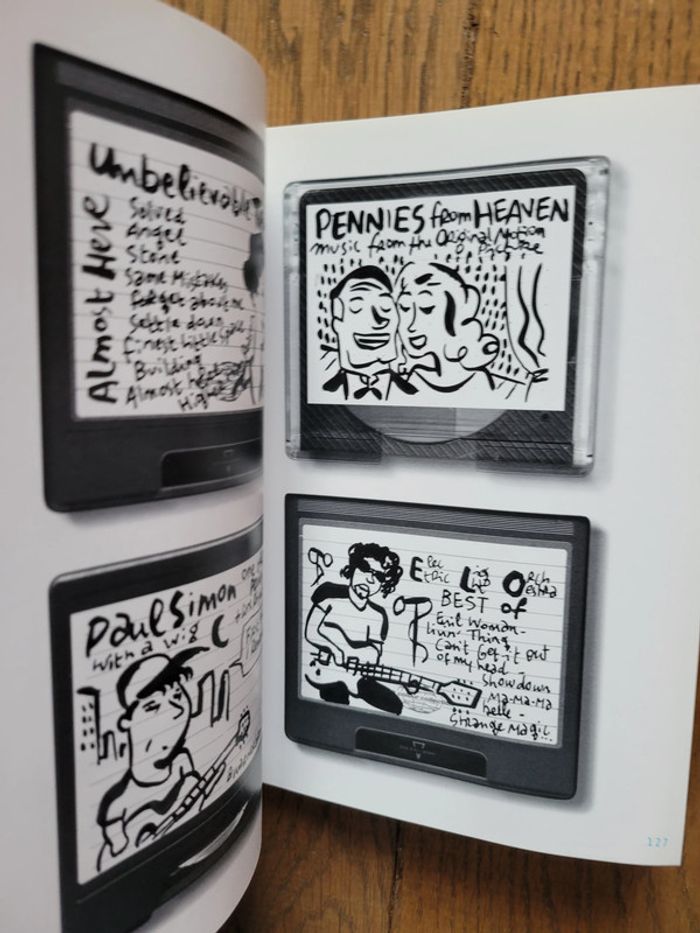 Unbelievable
Almost Here
Solved
Angel
Stone
Same Mistakes
forget about me
Settle down
finest little space
Building
Almost here
Higher
PENNIES from HEAVEN
music from the Original Motion
Picture
Paul Simon
with a wig
Elec tric Lig ht Orch estra
BEST of
Evil woman-
livin' Thing
Can't Get it out
of my head
Showdown
Ma-Ma-Ma
belle -
Strange Magic...
127